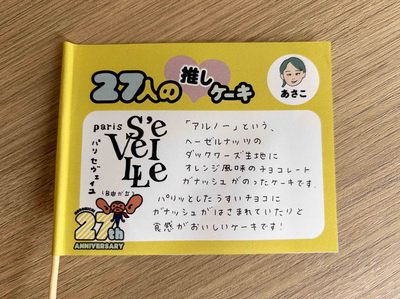 27人の推しケーキ
あさこ
paris
S'eVeiLLe
パリ セヴェイユ
(自由が丘)
「アルノー」という、
ヘーゼルナッツの
ダックワーズ生地に
オレンジ風味のチョコレート
ガナッシュがのったケーキです。
パリッとしたうすいチョコに
ガナッシュがはさまれていたりと
食感がおいしいケーキです!
27th
ANNIVERSARY